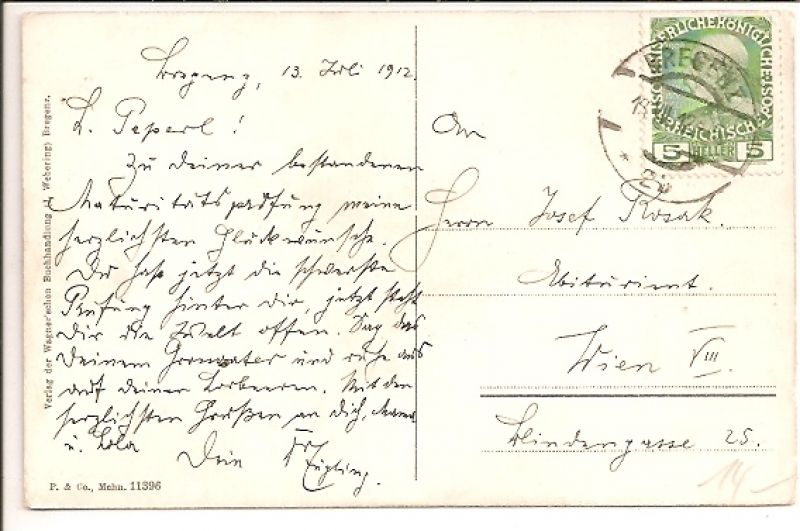 Bregenz, 13. Juli 1912.
L. Peperl!
Zu deiner bestandenen
Maturitätsprüfung meine
herzlichsten Glückwünsche.
Du hast jetzt die schwerste
Prüfung hinter dir, jetzt steht
Dir die Welt offen. Sag das
Deinem und ruhe aus
auf deinen Lorbeeren. Mit den
herzlichsten Grüßen an dich, Mama
u. Lola
Dein
An
Herrn Josef Kosak.
Abiturient.
Wien VIII.
Blindengasse 25.
14-
BREGENZ
KAISERLICHE KÖNIGLICHE
ÖSTERREICHISCHE
5 HELLER 5
Verlag der Wagner'schen Buchhandlung (J. Webering) Bregenz.
P. & Co., Mchn. 11396